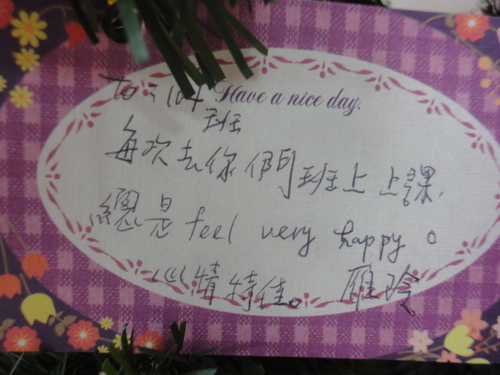 To：107 Have a nice day.
班
每次去你們班上上課,
總是feel very happy。
心情特佳。雁玲